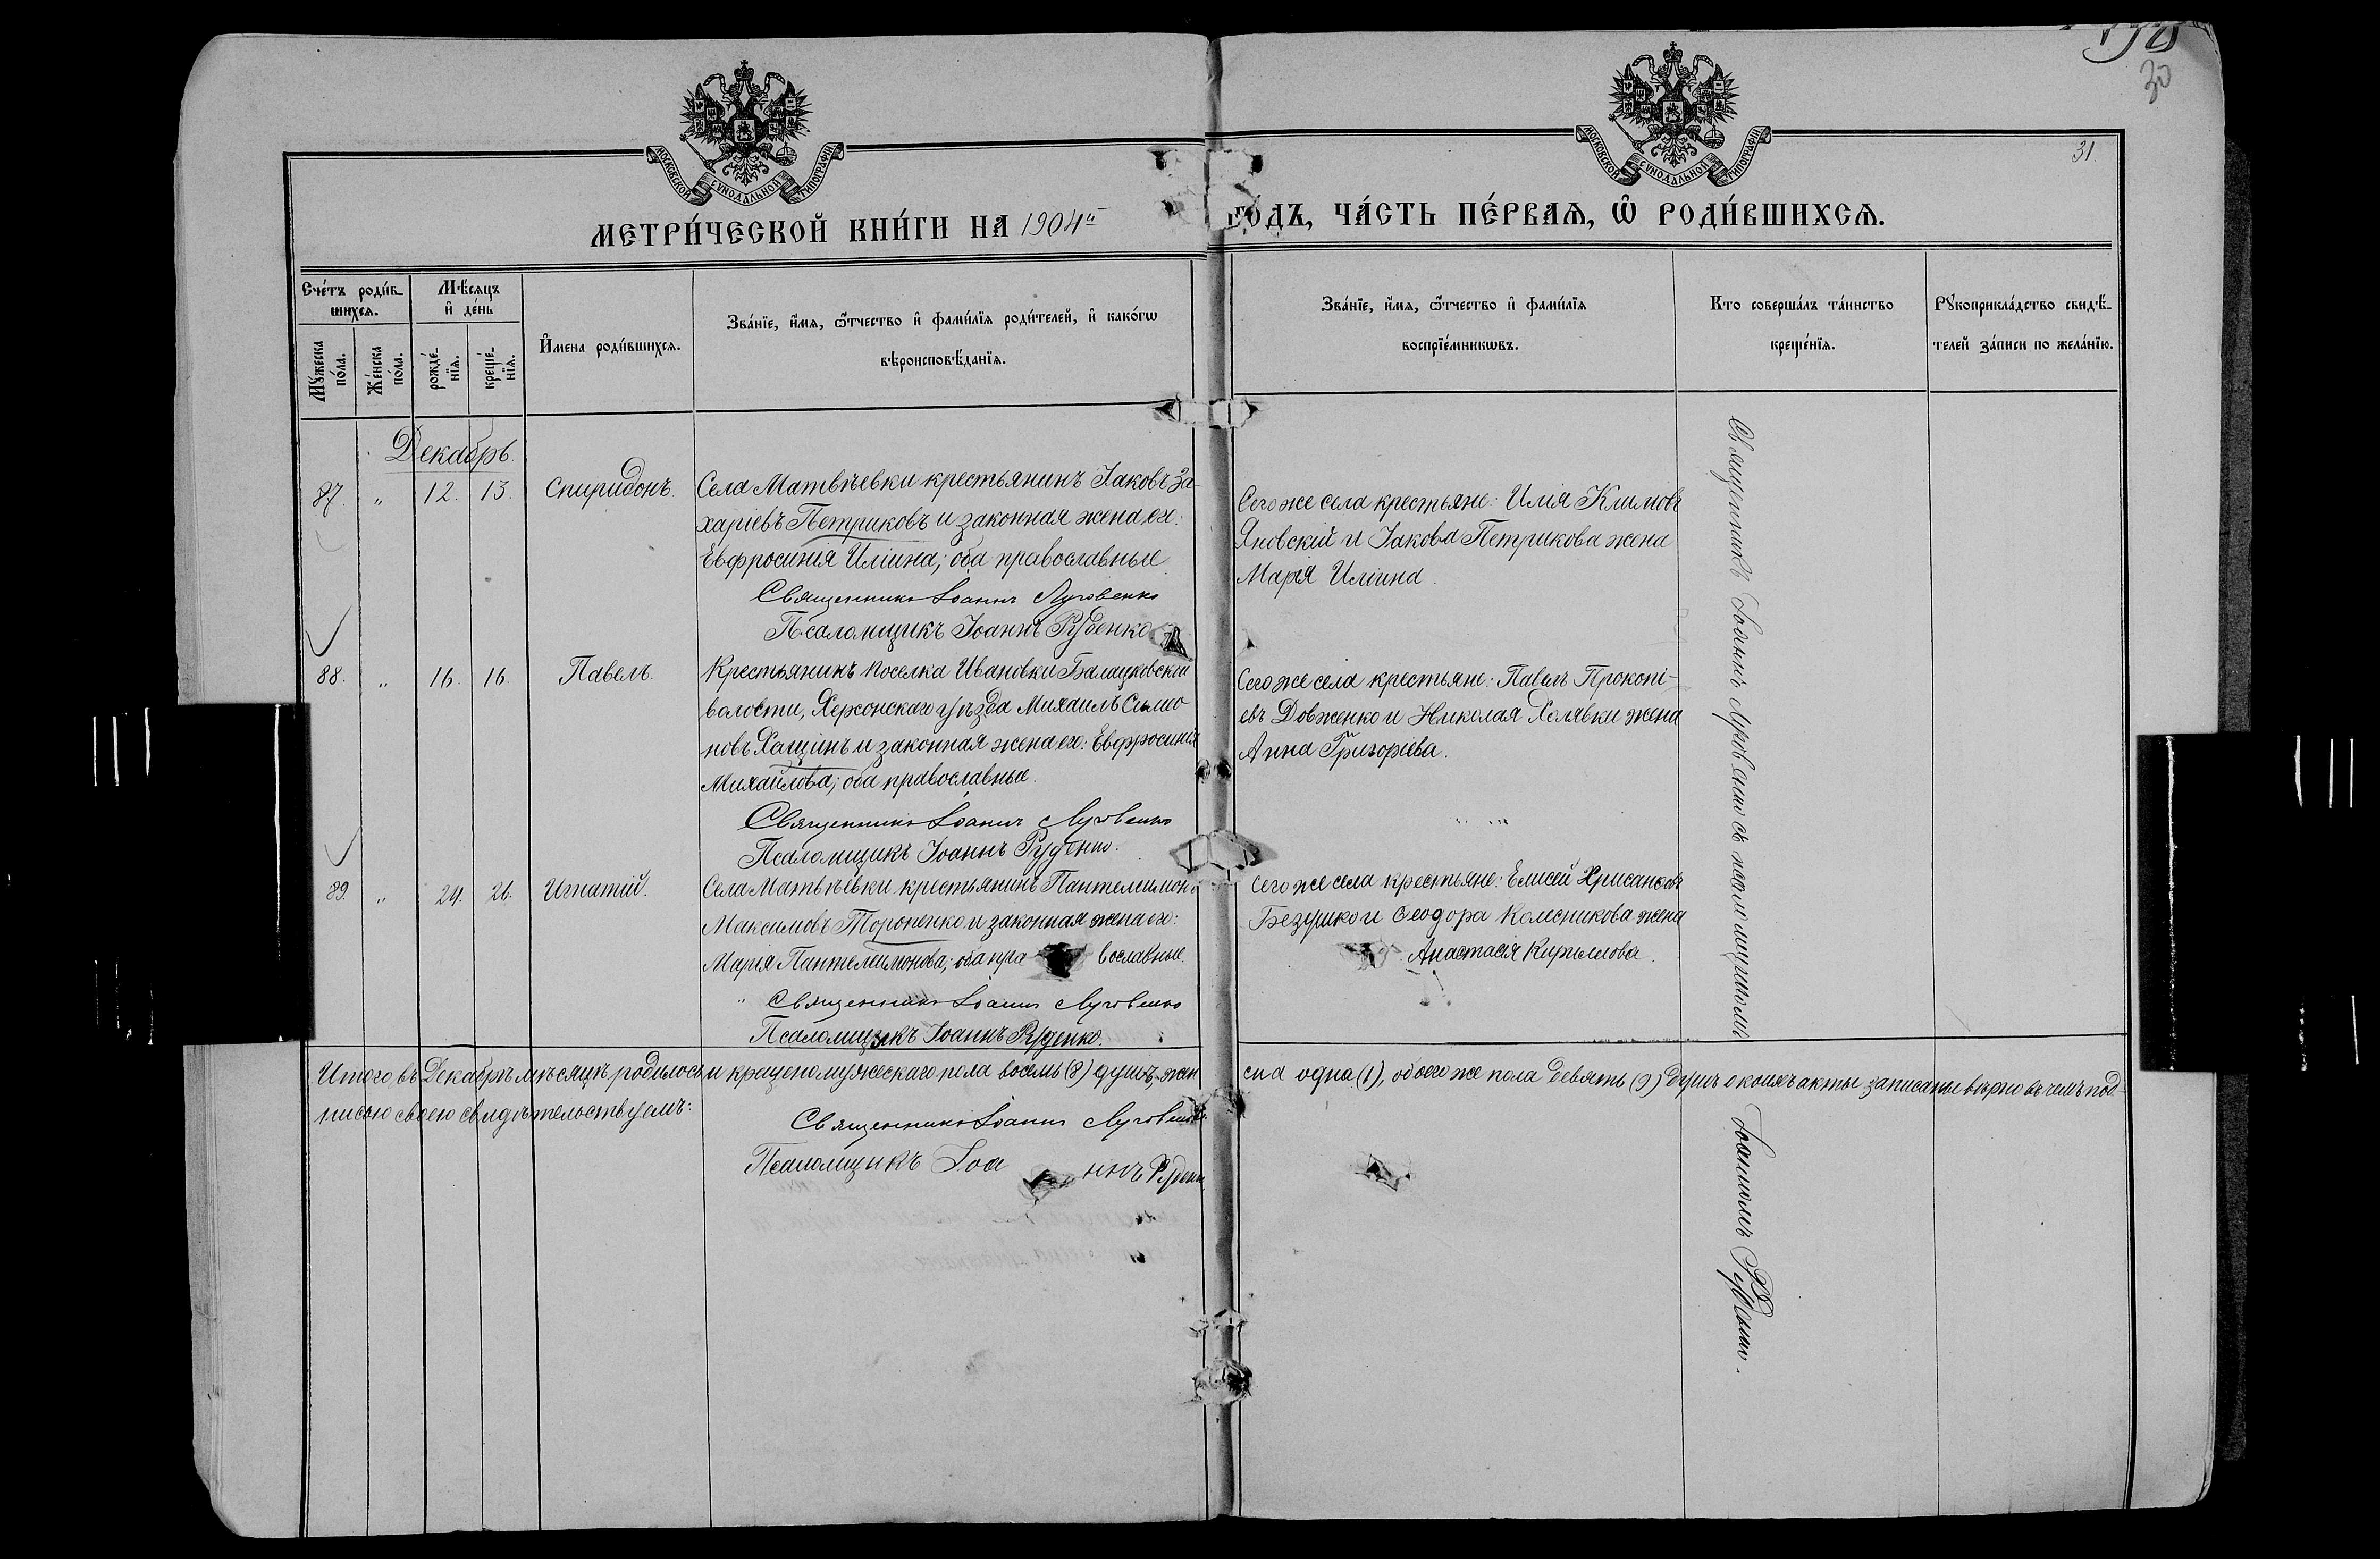 198
30
31.
МОСКОВСКОЙ СѴНОДАЛЬНОЙ ТИПОГРАФІИ
МОСКОВСКОЙ СѴНОДАЛЬНОЙ ТИПОГРАФІИ
МЕТРИ́ЧЕСКОЙ КНИ́ГИ НА 1904й ГО́ДЪ, ЧА́СТЬ ПЕ́РВАѦ, Ѡ РОДИ́ВШИХСѦ.
Сче́тъ роди́в-
шихсѧ.
Мꙋ́жеска
по́ла.
Же́нска
по́ла.
Мѣ́сяцъ
и҆ де́нь
рожде́-
нїѧ.
креще́-
нїѧ.
И҆мена роди́вшихсѧ.
Зва́нїе, и҆́мѧ, ѻ҆́тчество и҆ фами́лїѧ роди́телей, и҆ како́гѡ
вѣроисповѣ́данїѧ.
Зва́нїе, и҆́мѧ, ѻ҆́тчество и҆ фами́лїѧ
воспрїе́мникѡвъ.
Кто соверша́лъ та́инство
креще́нїѧ.
Рꙋкоприкла́дство свидѣ́-
телей за́писи по жела́нїю.
Декабрь.
87. " 12. 13. Спиридонъ.
Села Матвѣевки крестьянинъ Іаковъ За-
харіевъ Петриковъ и законная жена его:
Евфросинія Иліина; оба православные
Священникъ Іоаннъ Луговенко
Псаломщикъ Іоаннъ Руденко
Сего же села крестьяне: Илія Климовъ
Яновскій и Іакова Петрикова жена
Марія Иліина.
88. " 16. 16. Павелъ.
Крестьянинъ поселка Ивановки Балацковской
волости, Херсонскаго уѣзда Михаилъ Симео
новъ Хащинъ и законная жена его: Евфросинія
Михайлова; оба православные.
Священникъ Іоаннъ Луговенко
Псаломщикъ Іоаннъ Руденко.
Сего же села крестьяне: Павелъ Прокопі-
евъ Довженко и Николая Холявки жена
Анна Григоріева.
89. " 24. 26. Игнатій.
Села Матвѣевки крестьянинъ Пантелеимонъ
Максимовъ Торопенко и законная жена его:
Марія Пантелеимонова; оба пра вославные.
" Священникъ Іоаннъ Луговенко
Псаломщикъ Іоаннъ Руденко.
Сего же села крестьяне: Елисей Хрисанфовъ
Безушко и Ѳеодора Колесникова жена
Анастасія Кириллова.
Священникъ Іоаннъ Луговенко съ псаломщикомъ
Іоанномъ Руденко.
Итого въ Декабрѣ мѣсяцѣ родилось и крещено мужескаго пола восемь (8) душъ, жен
ска одна (1), обоего же пола девять (9) душъ о коихъ акты записаны вѣрно въ чемъ под
писью своею свидѣтельствуемъ:
Священникъ Іоаннъ Луговенко
Псаломщикъ Іоа ннъ Руденко